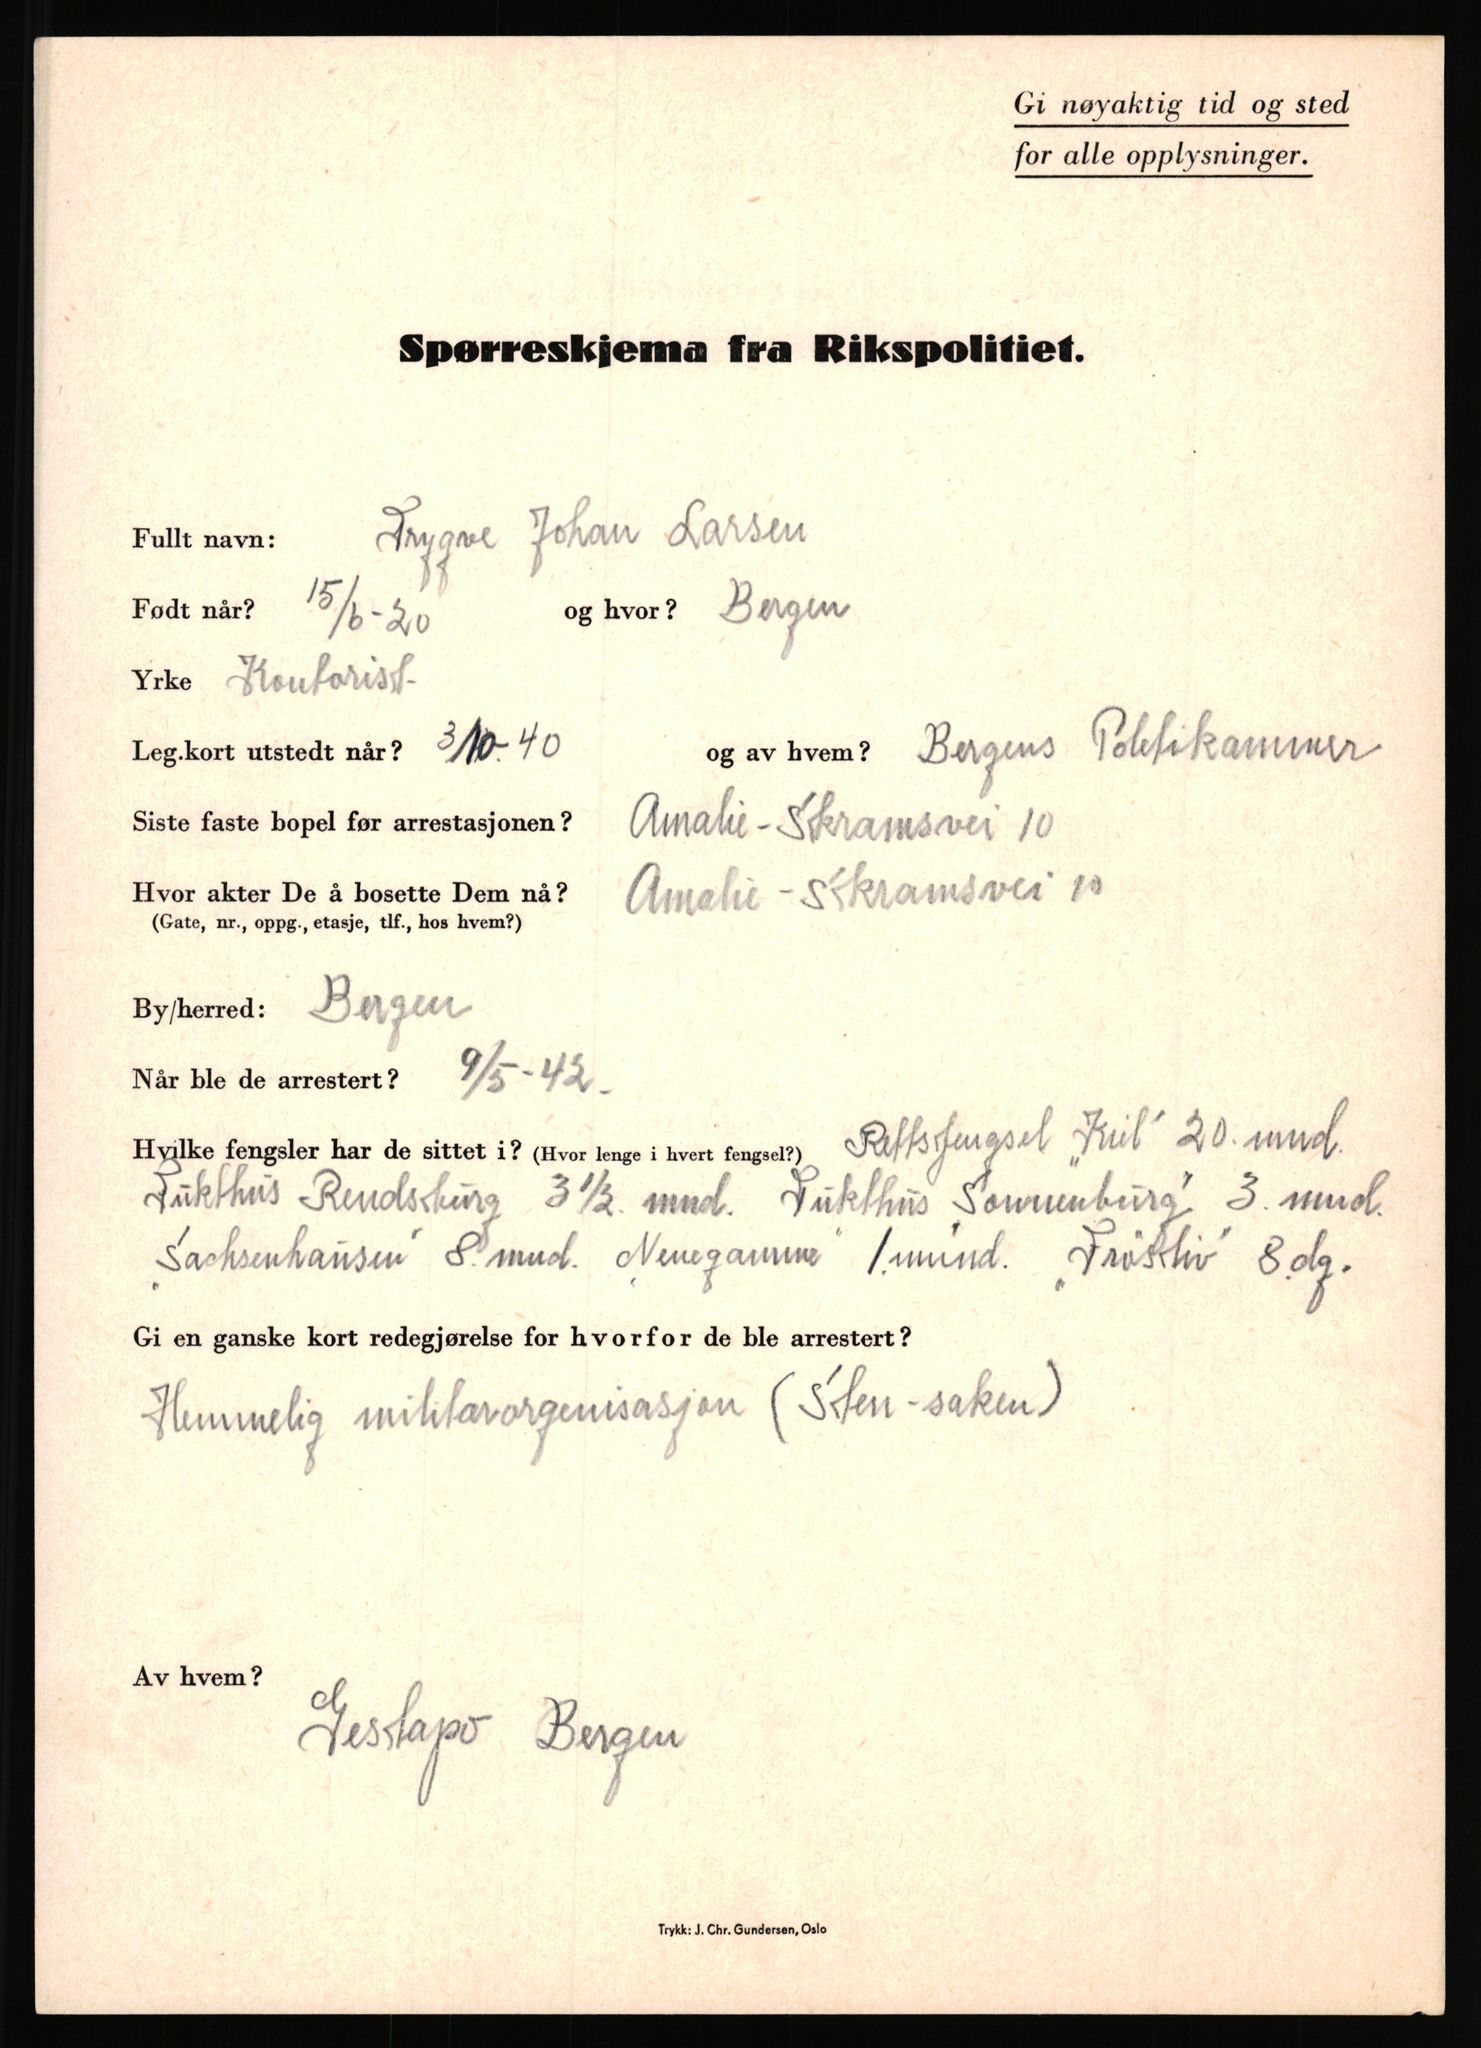 Gi nøyaktig tid og sted
for alle opplysninger.
Spørreskjema fra Rikspolitiet.
Fullt navn: Trygve Johan Larsen
Født når? 15/6-20 og hvor? Bergen
Yrke Kontorist
Leg.kort utstedt når? 3/10-40 og av hvem? Bergens Politikammer
Siste faste bopel før arrestasjonen? Amalie-Skramsvei 10
Hvor akter De å bosette Dem nå? Amalie-Skramsvei 10
(Gate, nr., oppg., etasje, tlf., hos hvem?)
By/herred: Bergen
Når ble de arrestert? 9/5-42.
Hvilke fengsler har de sittet i? (Hvor lenge i hvert fengsel?) Rettsfengsel „Kiel" 20. mnd.
Tukthus Rendsburg 3 1/2. mnd. Tukthus „Sonnenburg" 3. mnd.
„Sachsenhausen" 8. mnd. „Neuegamme" 1. mund. „Tröstliv" 8.dg.
Gi en ganske kort redegjørelse for hvorfor de ble arrestert?
Hemmelig militærorgenisasjon (Sten-saken)
Av hvem?
Gestapo Bergen
Trykk: J. Chr. Gundersen, Oslo